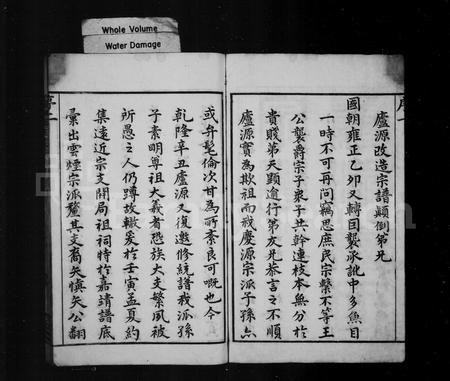 Whole Volume
Water Damage
盧源改造宗譜顛倒弟兄
國朝雍正乙卯又轉目襲承訛中多魚目
一時不可再問竊思庶民宗繫不等王
公襲爵宗子衆子共幹連枝本無分於
貴賤第天顯逾行第友兄恭言之不順
盧源實為欺祖而戒慶源宗派子孫亦
或弁髦倫次甘為所紊良可嘅也今
乾隆辛丑盧源又復邀修統譜我派孫
子素明尊祖大義者恐族大支繁夙被
所愚之人仍蹲故轍爰於壬寅孟夏約
集遠近宗支開局祖祠特於嘉靖譜底
彙出雲煙宗派釐其支裔矢慎矢公翻